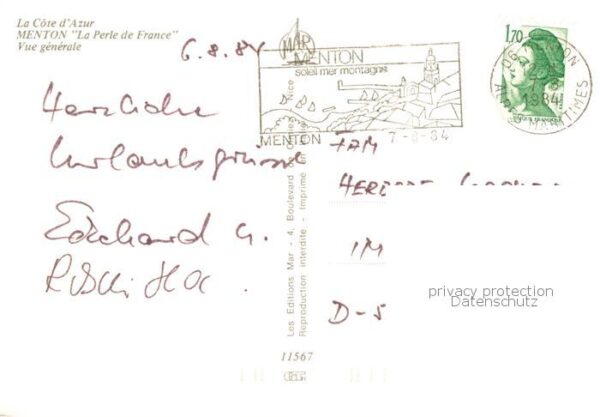 La Côte d'Azur
MENTON "La Perle de France"
Vue générale
6.8.84
MAR
MENTON
soleil mer montagne
MENTON
7-8-84
1,70
MENTON
1984
ALPES MARITIMES
Herzliche
Urlaubsgrüsse
Eckhard G.
FAM
HERBERT
IM
D-5
Les Editions Mar - 4, Boulevard
Reproduction interdite - Imprimé en
privacy protection
Datenschutz
11567